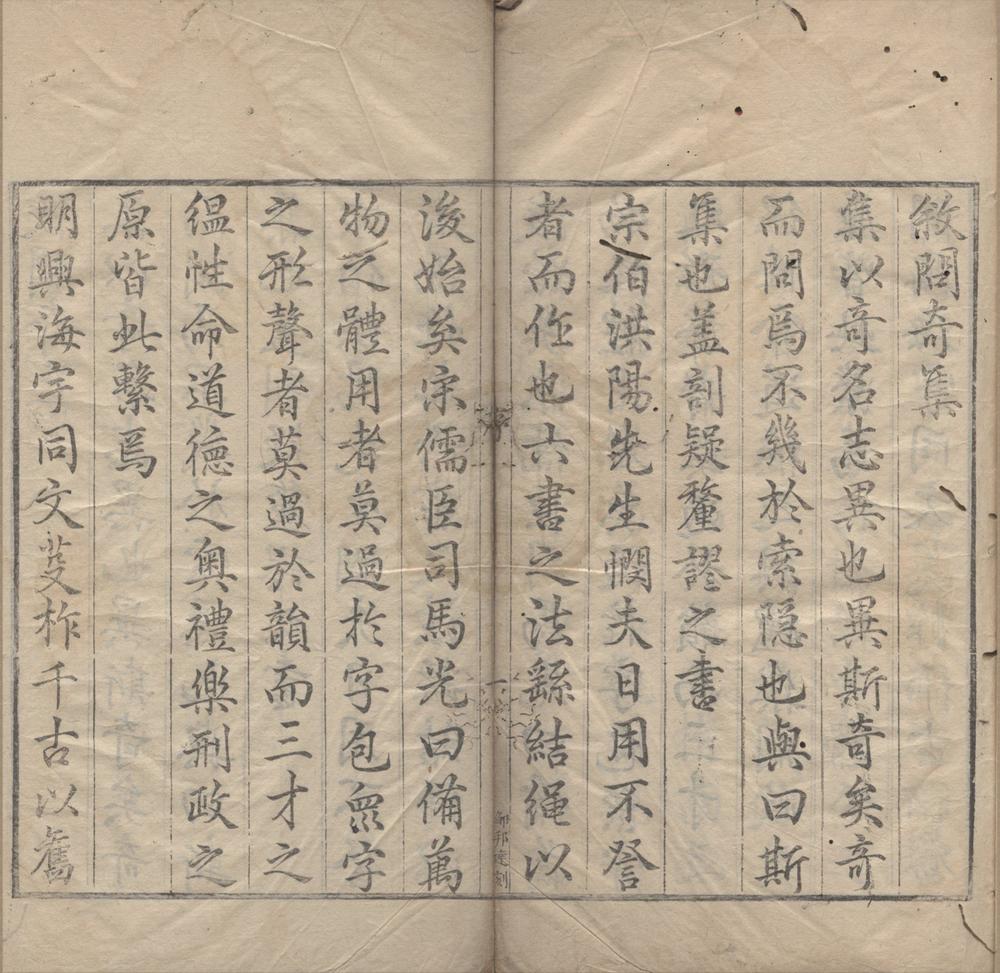 敘問奇集
集以奇名志異也異斯奇矣奇
而問焉不幾於索隐也與曰斯
集也盖剖疑釐謬之書
宗伯洪陽先生憫夫日用不詧
者而作也六書之法繇結繩以
浚始矣宋儒臣司馬光曰俻萬
物之體用者莫過於字包衆字
之形聲者莫過於韻而三才之
緼性命道德之奥禮樂刑政之
原皆此繫焉
明興海宇同文芟柞千古以舊